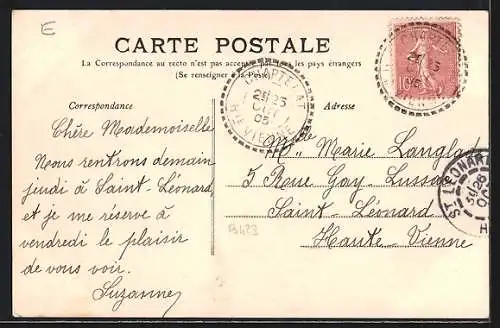 E
CARTE POSTALE
La Correspondance au recto n'est pas acceptée par les pays étrangers
(Se renseigner à la Poste)
Correspondance
Adresse
Chère Mademoiselle
Nous rentrons demain
jeudi à Saint-Léonard
et je me réserve à
vendredi le plaisir
de vous voir.
Suzanne
Mlle Marie Langlad
5 Rue Gay-Lussac
Saint-Léonard
Haute-Vienne
B423
25
05
VIENNE
10
ST LEONARD